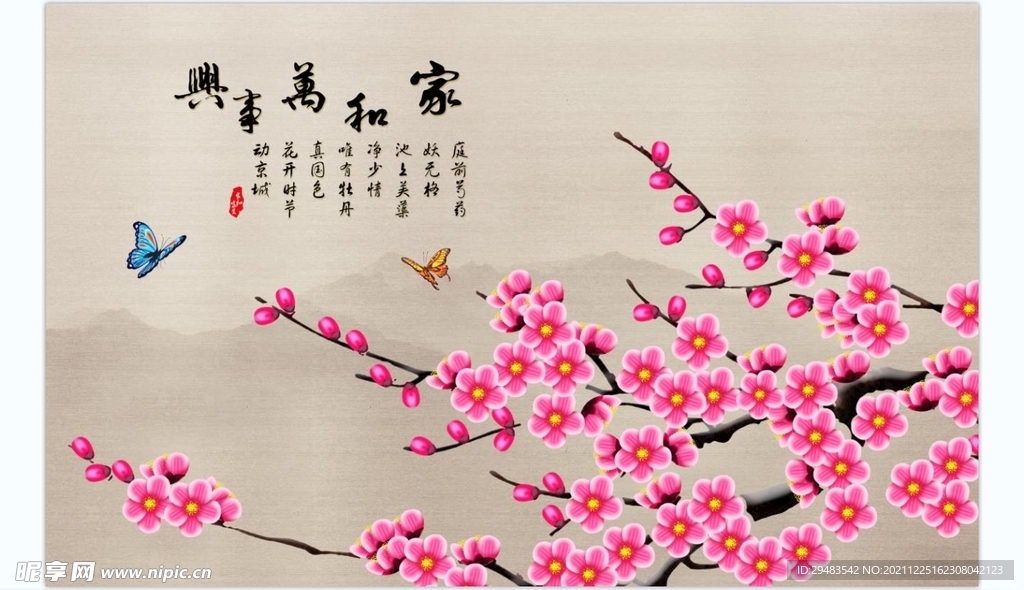 家和萬事興
庭前芍药
妖无格
池上芙蕖
净少情
唯有牡丹
真国色
花开时节
动京城
昵享网 www.nipic.cn
ID:29483542 NO:20211225162308042123